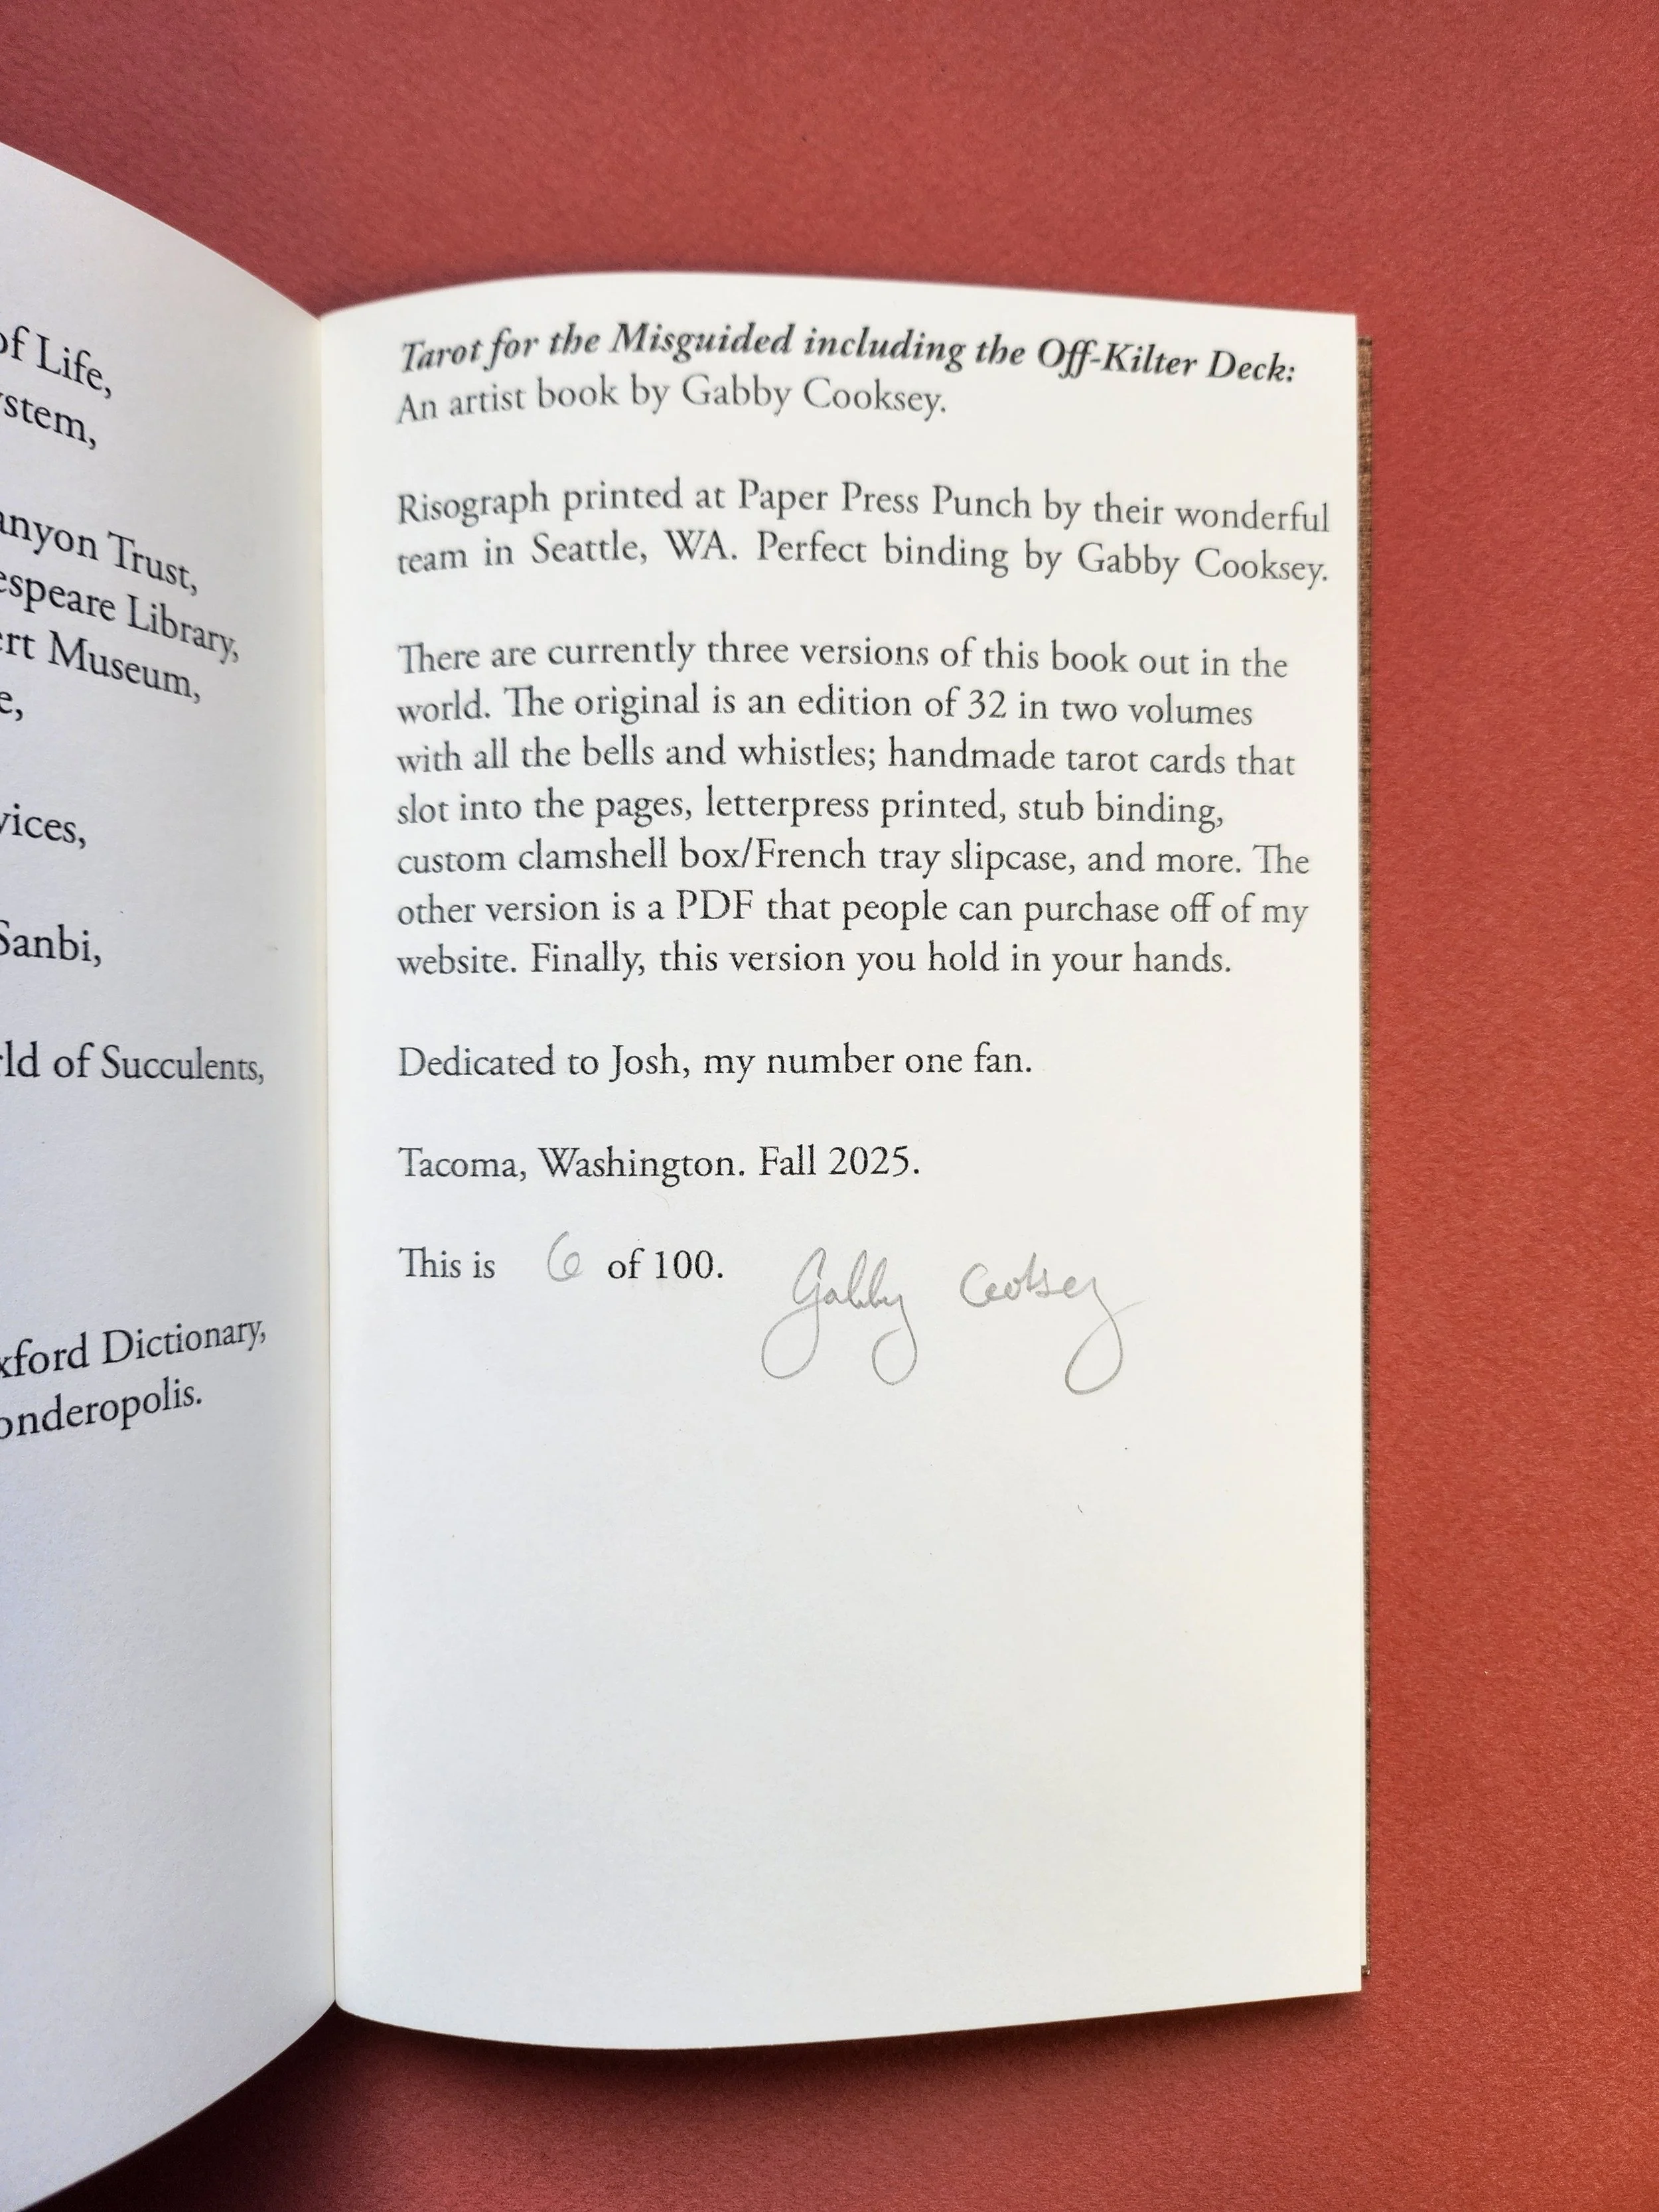 of Life,
stem,
anyon Trust,
espeare Library,
ert Museum,
e,
vices,
Sanbi,
rld of Succulents,
xford Dictionary,
onderopolis.
Tarot for the Misguided including the Off-Kilter Deck:
An artist book by Gabby Cooksey.
Risograph printed at Paper Press Punch by their wonderful
team in Seattle, WA. Perfect binding by Gabby Cooksey.
There are currently three versions of this book out in the
world. The original is an edition of 32 in two volumes
with all the bells and whistles; handmade tarot cards that
slot into the pages, letterpress printed, stub binding,
custom clamshell box/French tray slipcase, and more. The
other version is a PDF that people can purchase off of my
website. Finally, this version you hold in your hands.
Dedicated to Josh, my number one fan.
Tacoma, Washington. Fall 2025.
This is 6 of 100. Gabby Cooksey